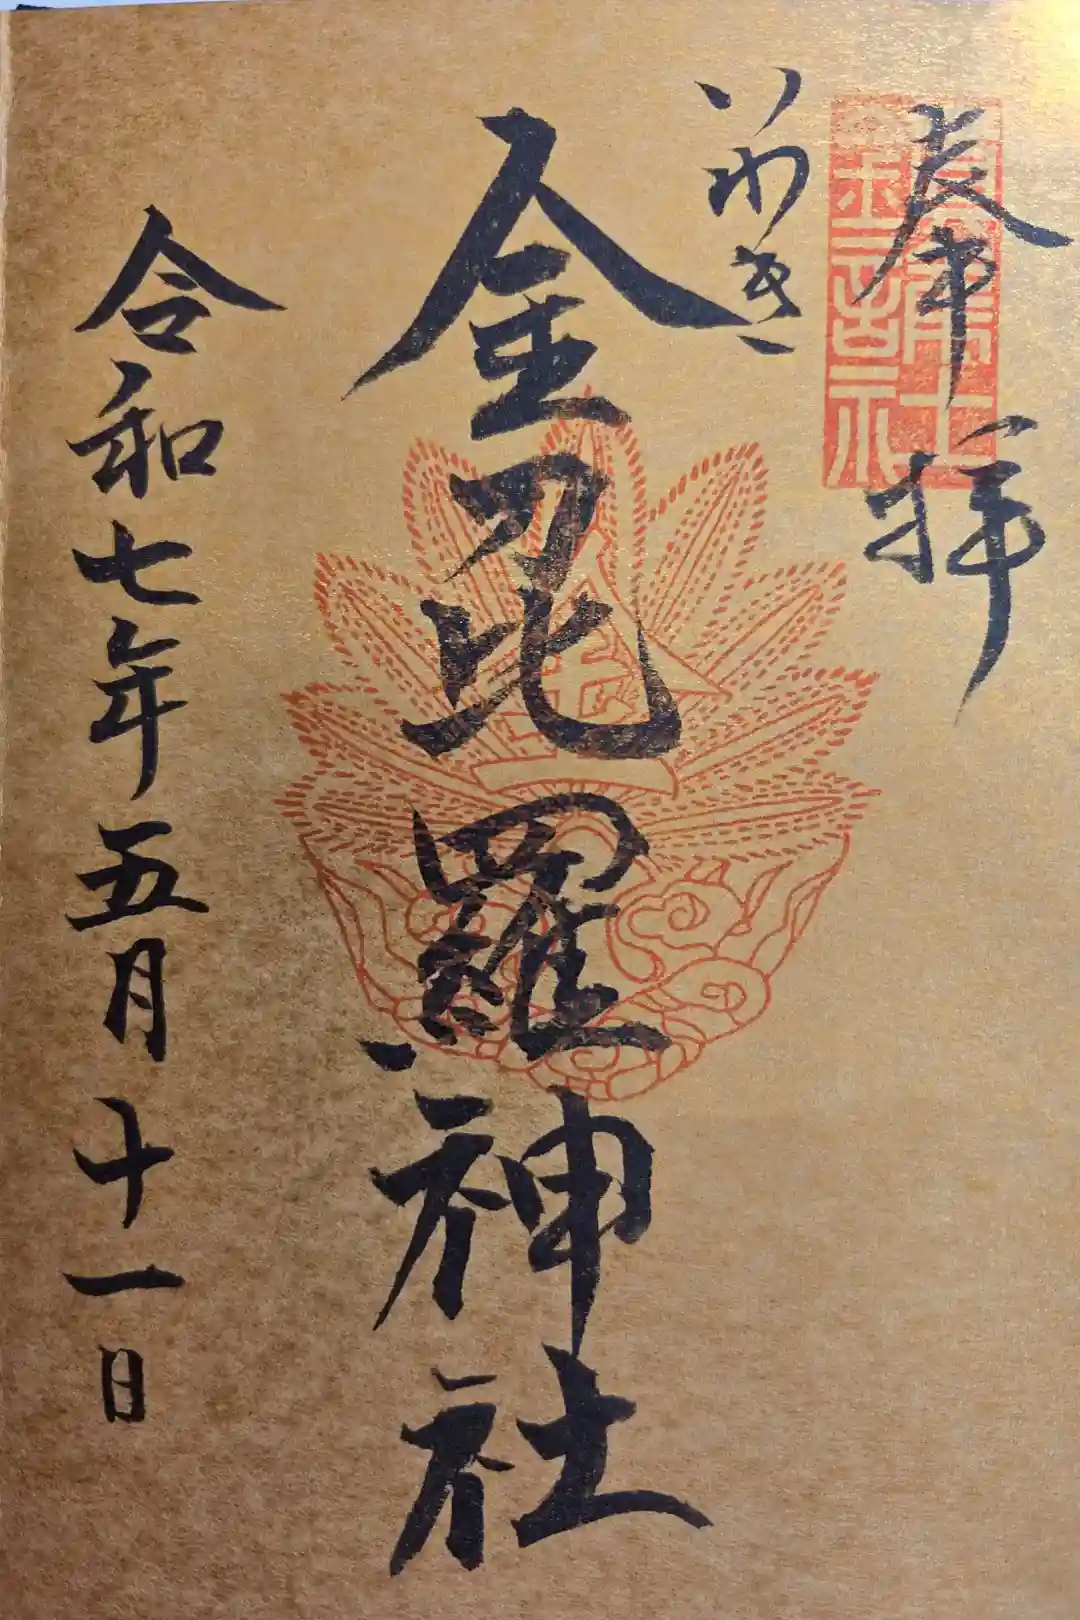 奉拝
いわき
金刀比羅神社
令和七年五月十一日